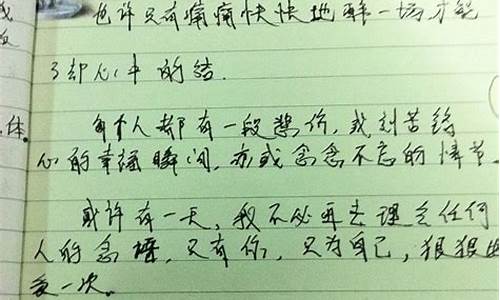 也许只有痛痛快快地醉一场才能
了却心中的结.
体. 每个人都有一段悲伤,或刻苦铭
心的幸福瞬间,亦或念念不忘的情节.
或许有一天,我不必再去理会任何
人的念,只有你,只为自己,狠狠
一次。